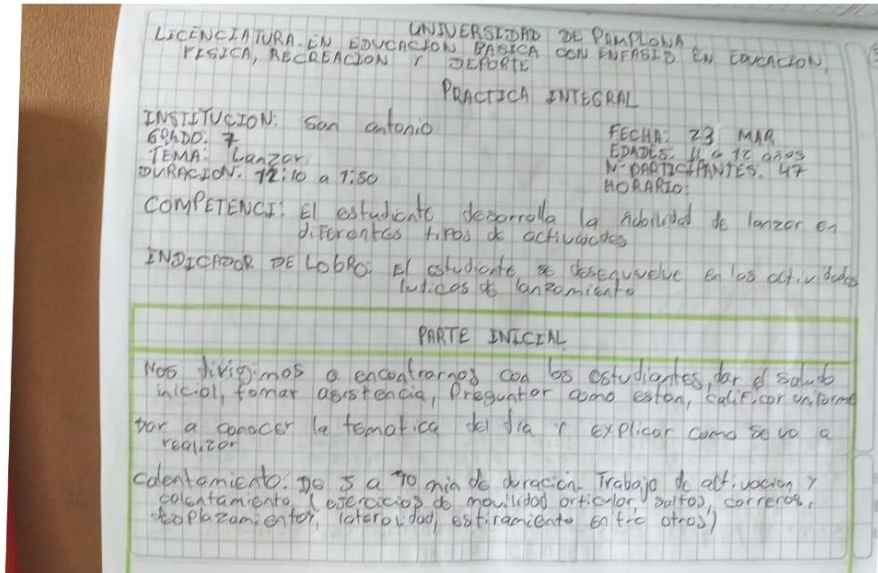 UNIVERSIDAD DE PAMPLONA
LICENCIATURA EN EDUCACION BASICA CON ENFASIS EN EDUCACION,
FISICA, RECREACION Y DEPORTE
PRACTICA INTEGRAL
INSTITUCION: San antonio
FECHA: 23 MAR
GRADO: 7
EDADES: 11 a 12 años
TEMA: Lanzar
N° PARTICIPANTES. 47
DURACION. 12:10 a 1:50
HORARIO:
COMPETENCI: El estudiante desarrolla la habilidad de lanzar en
diferentes tipos de actividades
INDICADOR DE LOGRO: El estudiante se desenvuelve en las actividades
ludicas de lanzamiento
PARTE INICIAL
Nos dirigimos a encontrarnos con los estudiantes, dar el saludo
inicial, tomar asistencia, Preguntar como estan, calificar uniforme
Dar a conocer la tematica del dia y explicar como se va a
realizar
Calentamiento: De 5 a 10 min de duración. Trabajo de activacion y
calentamiento (ejercicios de movilidad articular, saltos, carreras,
desplazamientos, lateralidad, estiramiento entre otros)